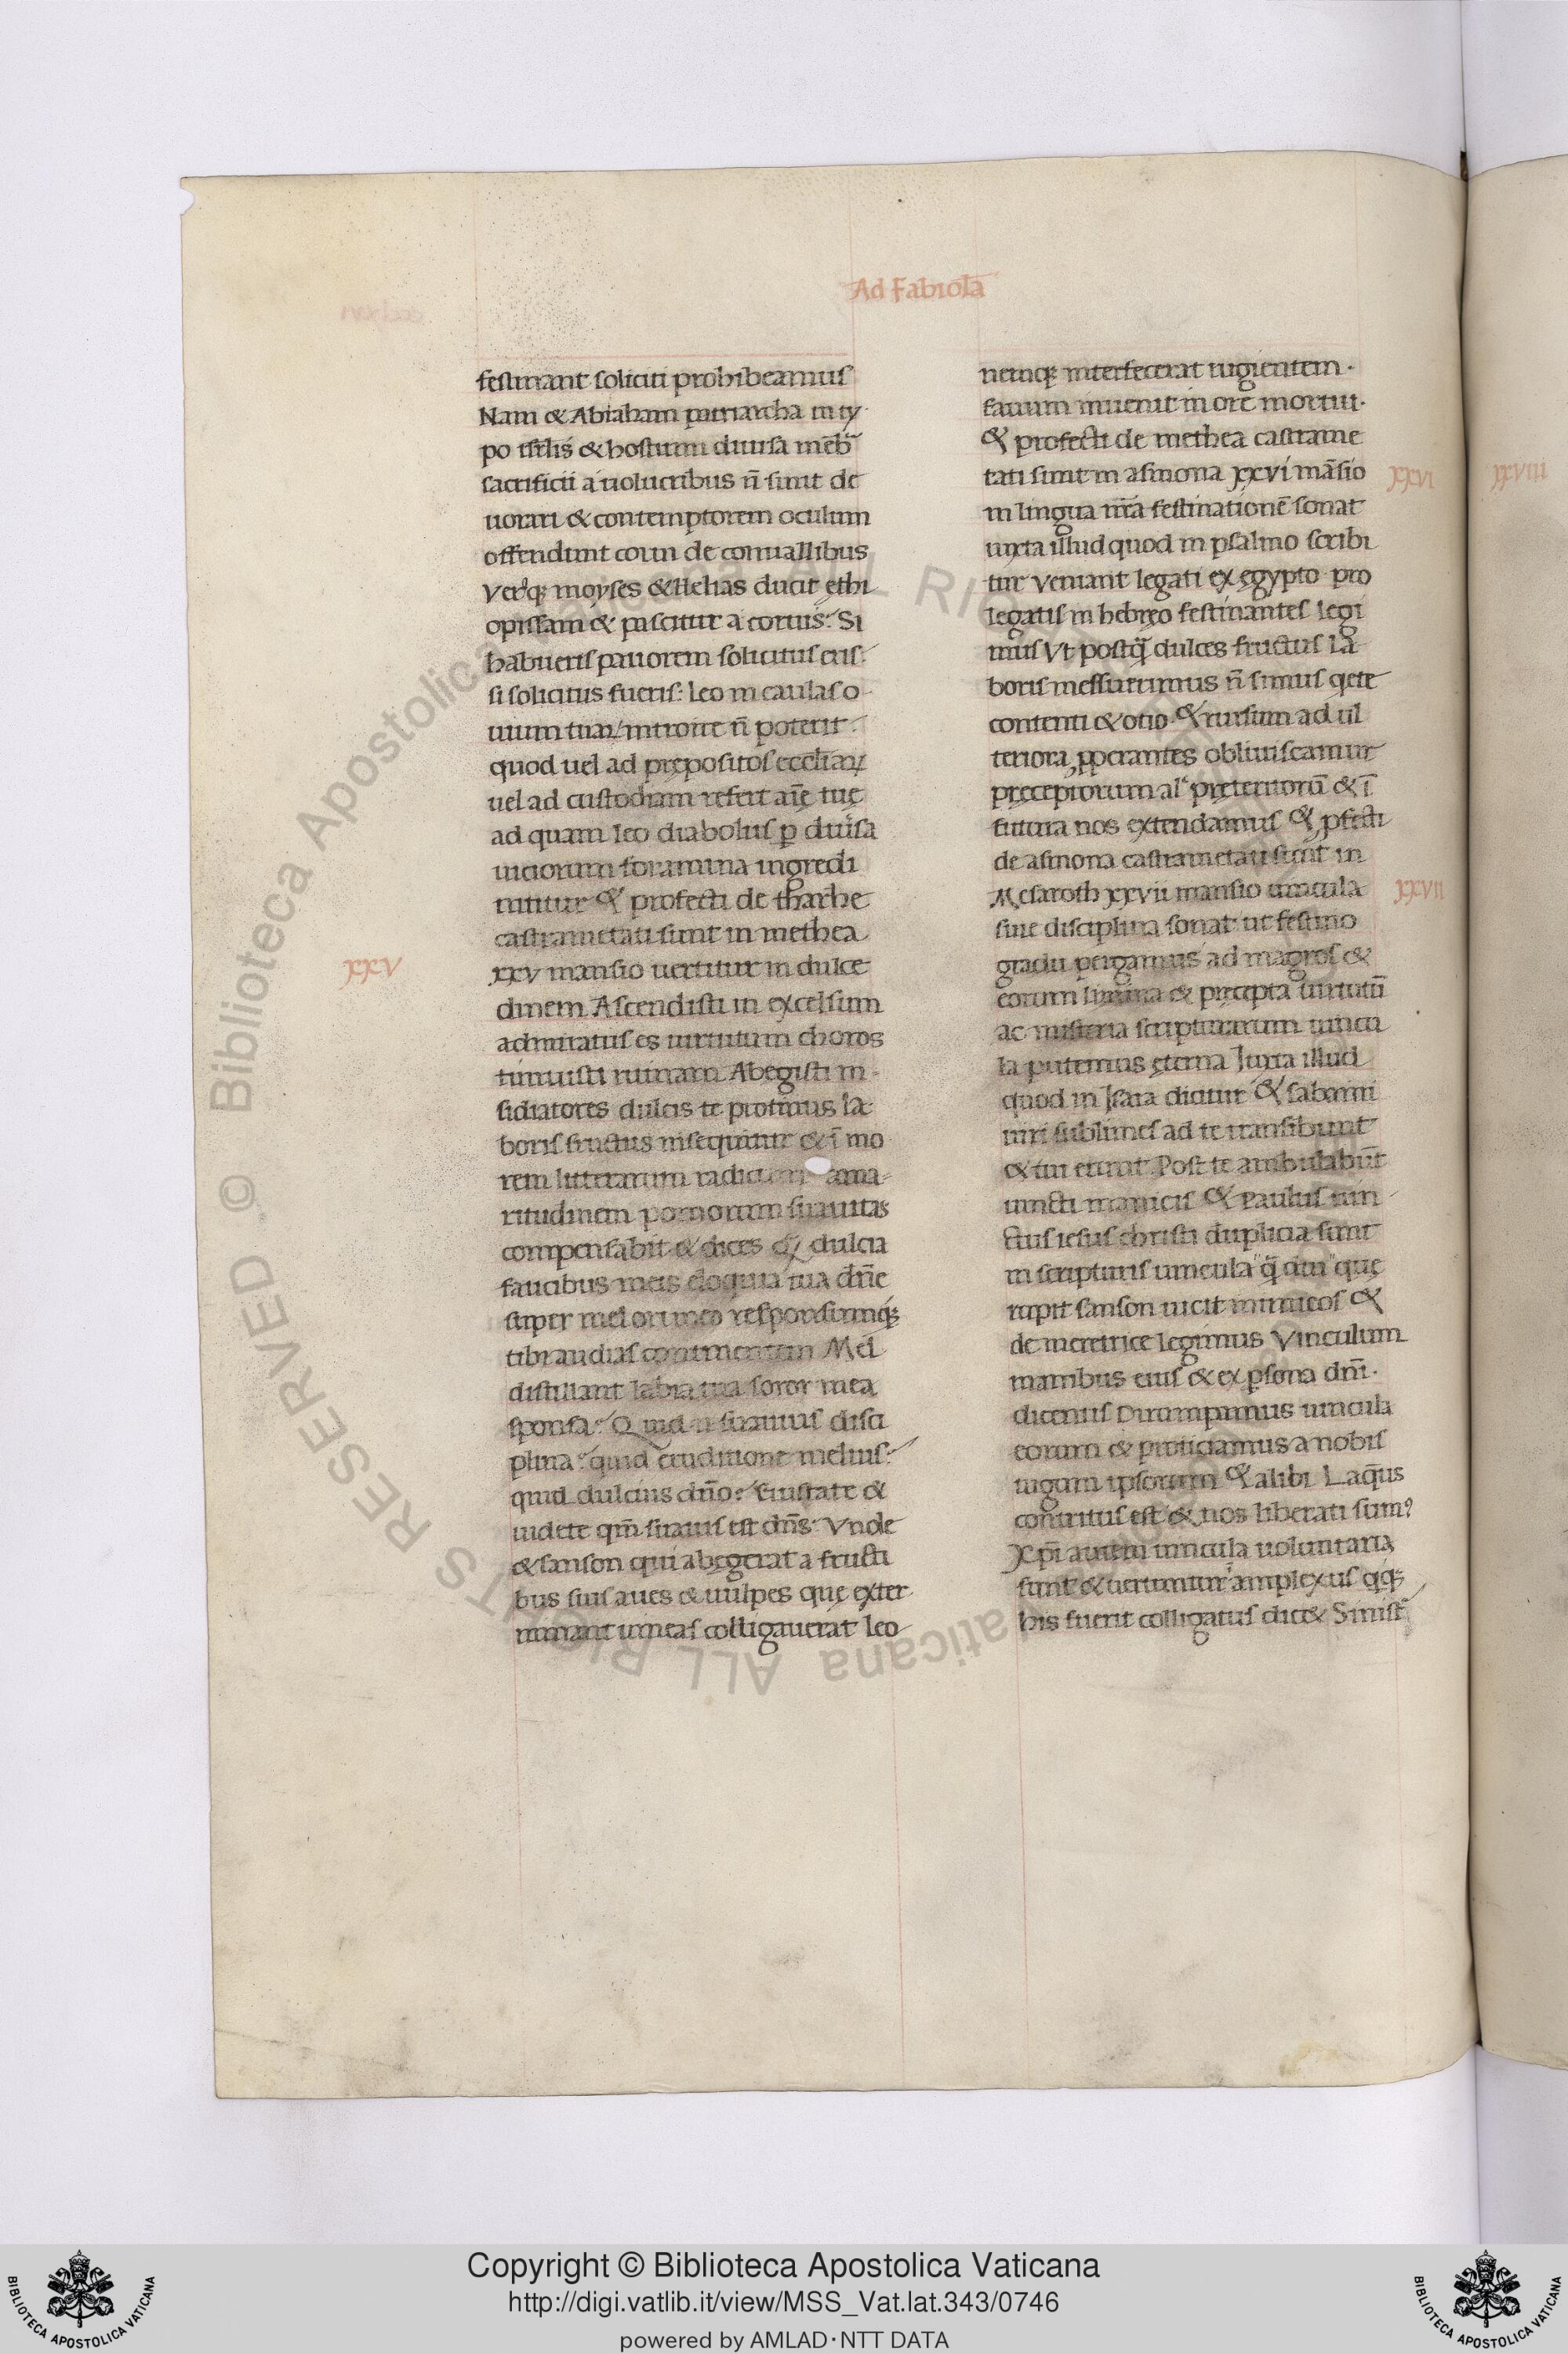 Ad Fabiolā
festinant soliciti prohibeamus
Nam & Abraham patriarcha in ty
po isrlis & hostium diuisa mēb
sacrificii a uolucribus n̄ sunt de
uorari & contemptorem oculum
offendunt corui de conuallibus
moyses & Helias ducit ethi
opissam & pascitur a coruis. Si
habueris pauorem solicitus eris.
si solicitus fueris: leo in caulas o
uium tuaꝝ introire n̄ poterit.
quod uel ad prępositos ecclīaꝝ
uel ad custodiam refert aīę tuę
ad quam leo diabolus ꝑ diuīsa
uiciorum foramina ingredi
nititur & profecti de tharhe
castrametati sunt in methea
xxv mansio uertitur in dulce
dinem Ascendisti in excelsum
admiratus es uirtutum choros
timuisti ruinam Abegisti in
sidiatores dulcis te protinus la
boris fructus insequitur & ī mo
rem litterarum radicum ama
ritudinem pomorum suauitas
compensabit & dices dulcia
faucibus meis eloquia tua dn̄e
super mel ori meo responsumq;
tibi audias Mel
distillant labia tua soror mea
sponsa. Quid suauius disci
plina? quid eruditione melius?
quid dulcius dn̄o? Gustate &
uidete qm̄ suauis est dn̄s. Vnde
& sanson qui abęgerat a fructi
bus suis aues & uulpes quę exter
minant uineas colligauerat leo
XXV
nemq; interfecerat rugientem.
fauum inuenit in ore mortui.
& profecti de methea castrame
tati sunt in asmona xxvi māsio
in lingua nr̄a festinationē sonat
iuxta illud quod in psalmo scribi
tur Veniant legati ex egypto pro
legatis in hebręo festinantes legi
mus Vt postq̄ dulces fructus la
boris messuerimus n̄ simus qete
contenti & otio & rursum ad ul
teriora ꝓperantes obliuiscamur
pręceptorum al pręteritorū & ī
futura nos extendamus & ꝓfecti
de asmona castrametati sunt in
Mesaroth xxvii mansio uincula
siue disciplina sonat ut festino
gradu pergamus ad magros &
eorum limina & pręcepta uirtutū
ac misteria scripturarum uincu
la putemus ęterna Iuxta illud
quod in Isaia dicitur & sabaim
uiri sublimes ad te transibunt
& tui erunt. Post te ambulabūt
uincti manicis & Paulus uin
ctus iesus christi duplicia sunt
in scripturis uincula quę
rupit sanson uicit inimicos &
de meretrice legimus Vinculum
manibus eius & ex ꝑsona dn̄i.
dicentis Dirumpamus uincula
eorum & proiciamus a nobis
iugum ipsorum & alibi Laq̄us
contritus est & nos liberati sumꝰ
Xp̄i autem uincula uoluntaria
sunt & uertuntur amplexus qq;
his fuerit colligatus dic& Sinist
XXVI
XXVII
XXVIII
© Biblioteca Apostolica Vaticana ALL RIGHTS RESERVED
Copyright © Biblioteca Apostolica Vaticana
http://digi.vatlib.it/view/MSS_Vat.lat.343/0746
powered by AMLAD·NTT DATA
BIBLIOTECA APOSTOLICA VATICANA
BIBLIOTECA APOSTOLICA VATICANA